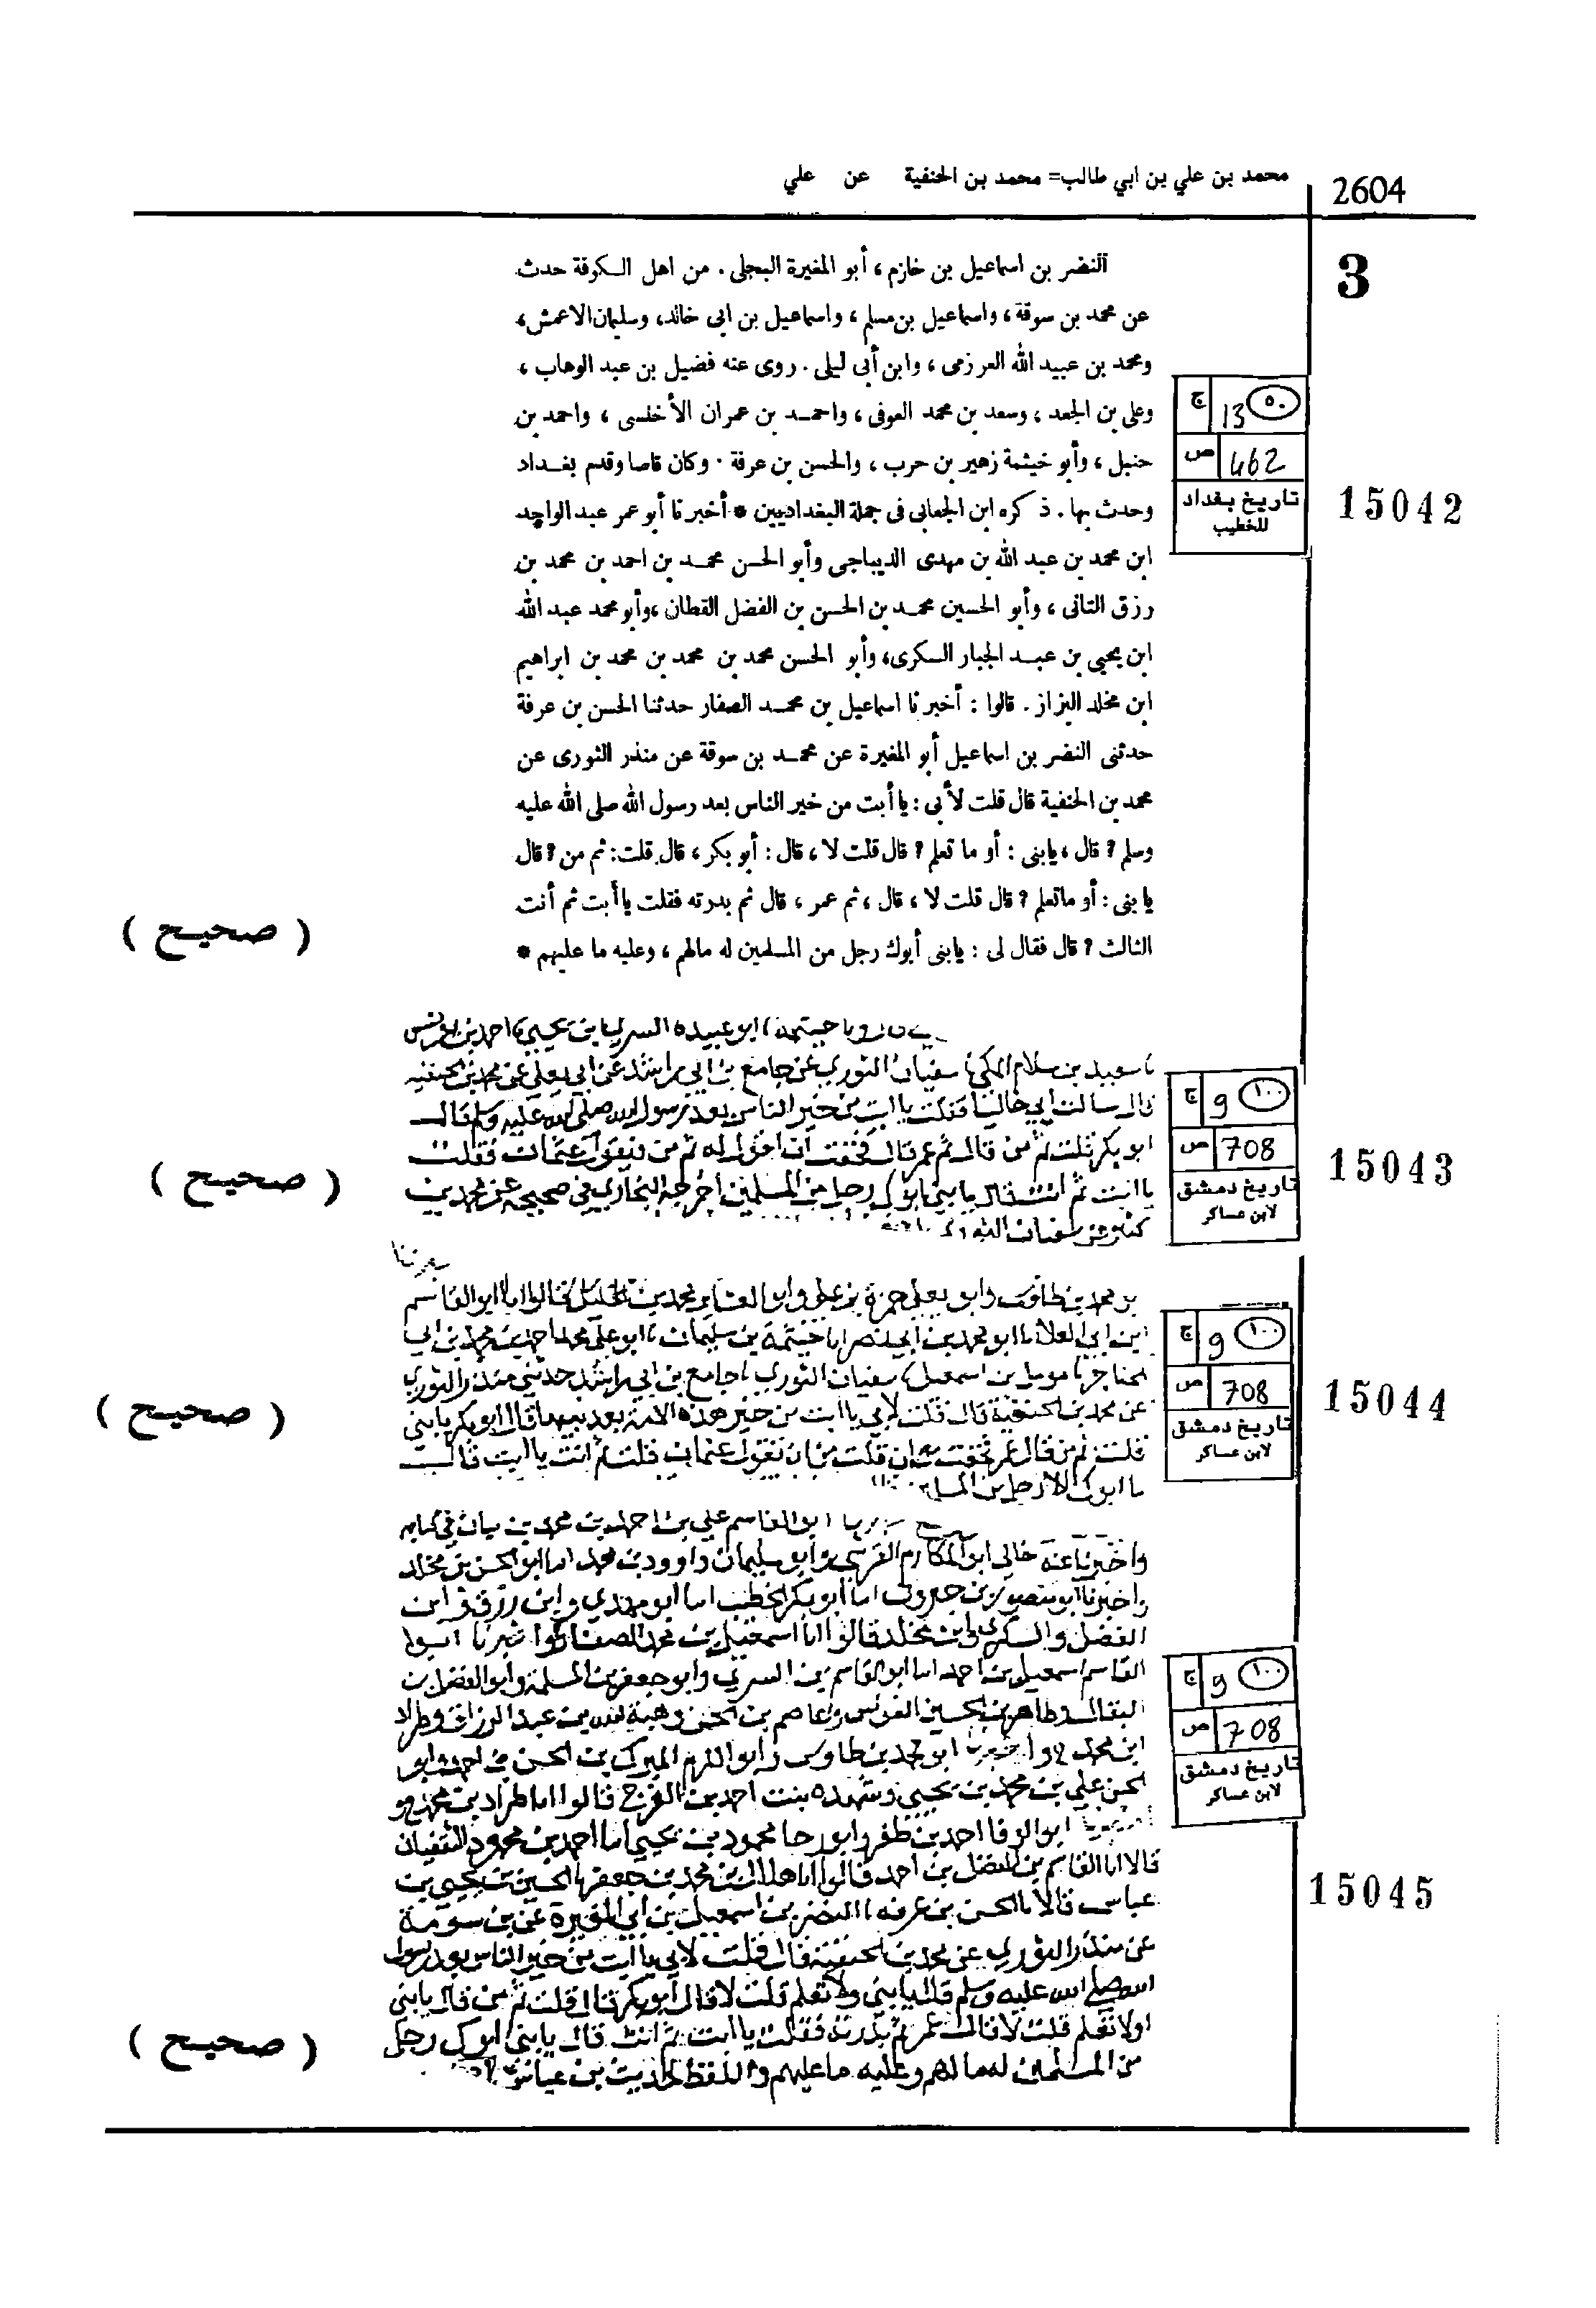 2604
محمد بن علي بن ابي طالب= محمد بن الحنفية عن علي
3
النضر بن اسماعيل بن خازم ، أبو المغيرة البجلى . من اهل الكوفة حدث
عن محمد بن سوقة ، واسماعيل بن مسلم ، واسماعيل بن ابى خالد، وسليمان الاعمش،
ومحمد بن عبيد الله العرزمى ، وابن أبى ليلى . روى عنه فضيل بن عبد الوهاب ،
وعلى بن الجعد ، وسعد بن محمد العوفى ، واحمد بن عمران الأخنسى ، واحمد بن
حنبل ، وأبو خيثمة زهير بن حرب ، والحسن بن عرفة . وكان قاصا وقدم بغداد
وحدث بها . ذكره ابن الجعابى فى جملة البغداديين * أخبرنا أبو عمر عبد الواحد
ابن محمد بن عبد الله بن مهدى الديباجى وأبو الحسن محمد بن احمد بن محمد بن
رزق التانى ، وأبو الحسين محمد بن الحسن بن الفضل القطان ،وأبو محمد عبد الله
ابن يحيى بن عبد الجبار السكرى، وأبو الحسن محمد بن محمد بن محمد بن ابراهيم
ابن مخلد البزاز . قالوا : أخبرنا اسماعيل بن محمد الصفار حدثنا الحسن بن عرفة
حدثنى النضر بن اسماعيل أبو المغيرة عن محمد بن سوقة عن منذر الثورى عن
محمد بن الحنفية قال قلت لأبى : يا أبت من خير الناس بعد رسول الله صلى الله عليه
وسلم ؟ قال ، يابنى : أو ما تعلم ؟ قال قلت لا ، قال : أبو بكر ، قال قلت: ثم من ؟ قال
يابنى : أو ماتعلم ؟ قال قلت لا ، قال ، ثم عمر ، قال ثم بدرته فقلت يا أبت ثم أنت
الثالث ؟ قال فقال لى : يابنى أبوك رجل من المسلمين له مالهم ، وعليه ما عليهم *
( صحيح )
٥٠ 13 ج
462 ص
تاريخ بغداد
للخطيب
15042
ابو عبيده السري بن يحيى احمد بن يونس
سعيد بن سلام المكي سفيان الثوري عن جامع بن ابي راشد عن ابي يعلى عن محمد بن الحنفيه
قال سالت ابي خاليا فقلت يا ابت من خير الناس بعد رسول الله صلى الله عليه وسلم قال
ابو بكر قلت ثم من قال ثم عمر قال فخفت ان اقول له ثم من فيقول عثمان فقلت
يا ابت ثم انت قال يا بني ابوك رجل من المسلمين اخرجه البخاري في صحيحه عن محمد بن
كثير عن سفيان
( صحيح )
١٠٠ 9 ج
708 ص
تاريخ دمشق
لابن عساكر
15043
محمد بن طاوس وابو يعلى حمزة بن علي وابو العشاير محمد بن الخليل قالوا انا ابو القاسم
ابن ابي العلا انا ابو محمد بن ابي نصر انا خيثمة بن سليمان ابو علي محمد بن ابي
الحناجر مومل بن اسمعيل سفيان الثوري جامع بن ابي راشد حدثني منذر الثوري
عن محمد بن الحنفية قال قلت لابي يا ابت من خير هذه الامة بعد نبيها قال ابو بكر يا بني
قلت ثم من قال عمر فخفت ان قلت من ان تقول عثمان قلت ثم انت يا ابت قال
ما ابوك الا رجل من
( صحيح )
١٠٠ 9 ج
708 ص
تاريخ دمشق
لابن عساكر
15044
ابو القاسم علي بن احمد بن محمد بن بيان في كتابه
واخبرنا عنه خالي ابو المكارم القرشي وابو سليمان داوود بن محمد انا ابو الحسن بن مخلد
واخبرنا ابو منصور بن خيرون انا ابو بكر الخطيب انا ابو مهدي وابن رزق وابن
الفضل والسكري وابن مخلد قالوا انا اسمعيل بن محمد الصفار
القاسم اسمعيل بن احمد انا ابو القاسم بن السري وابو جعفر بن المسلمة وابو الفضل بن
البقال وطاهر بن الحسين القواس وعاصم بن الحسن وهبة الله بن عبد الرزاق وطراد
ابن محمد واخبرنا ابو محمد بن طاوس وابو الكرم المبارك بن الحسن بن احمد وابو
الحسن علي بن محمد بن يحيى وشهده بنت احمد بن الفرج قالوا انا طراد بن محمد
ابو الوفا احمد بن ظفر وابو رجا محمود بن يحيى انا احمد بن محمود الثقفيان
قالا انا القاسم بن الفضل بن احمد قالوا انا هلال بن محمد بن جعفر الحسين بن يحيى بن
عباس قالا نا الحسن بن عرفه النضر بن اسمعيل بن ابي المغيرة عن بن سوقة
عن منذر الثوري عن محمد بن الحنفية قال قلت لابي يا ابت من خير الناس بعد رسول
الله صلى الله عليه وسلم قال يا بني ولا تعلم قلت لا قال ابو بكر قال قلت ثم من قال يا بني
اولا تعلم قلت لا قال عمر ثم بدرته فقلت يا ابت ثم انت قال يا بني ابوك رجل
من المسلمين له مالهم وعليه ما عليهم واللفظ لحديث بن عياش
( صحيح )
١٠٠ 9 ج
708 ص
تاريخ دمشق
لابن عساكر
15045